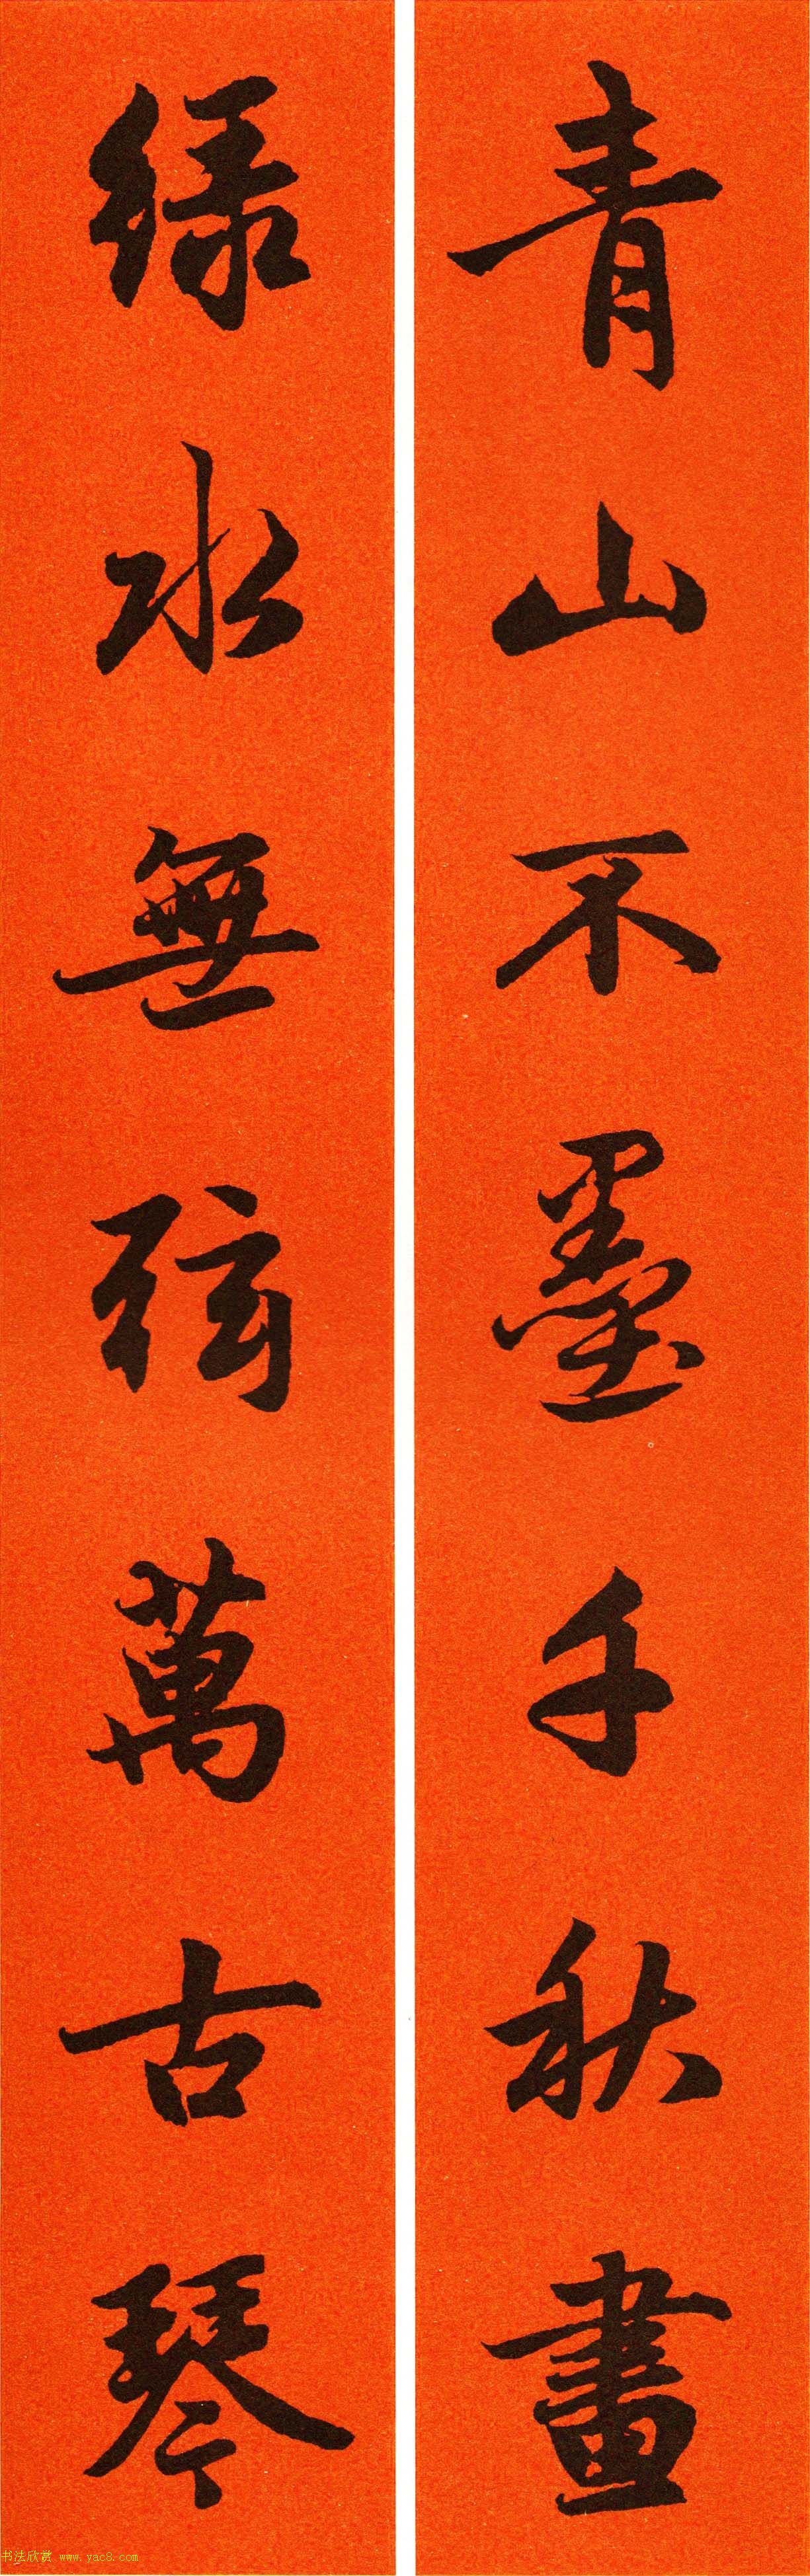 青山不墨千秋畫
绿水無弦萬古琴
书法欣赏 www.yac8.com